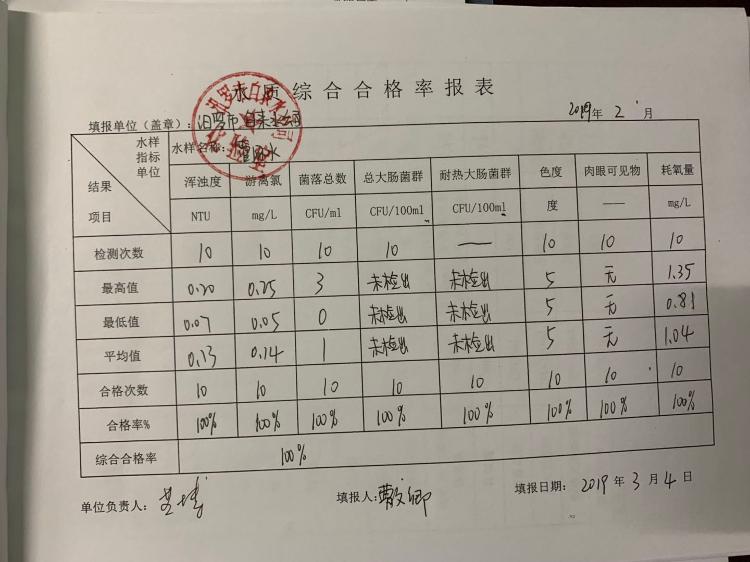 水质综合合格率报表
填报单位（盖章）：汨罗市自来水公司 2019年2月
水样 水样名称：管网水
指标
单位
结果 浑浊度 游离氯 菌落总数 总大肠菌群 耐热大肠菌群 色度 肉眼可见物 耗氧量
项目 NTU mg/L CFU/ml CFU/100ml CFU/100ml 度 —— mg/L
检测次数 10 10 10 10 —— 10 10 10
最高值 0.20 0.25 3 未检出 未检出 5 无 1.35
最低值 0.07 0.05 0 未检出 未检出 5 无 0.81
平均值 0.13 0.14 1 未检出 未检出 5 无 1.04
合格次数 10 10 10 10 10 10 10 10
合格率% 100% 100% 100% 100% 100% 100% 100% 100%
综合合格率 100%
单位负责人： 填报人： 填报日期：2019年3月4日